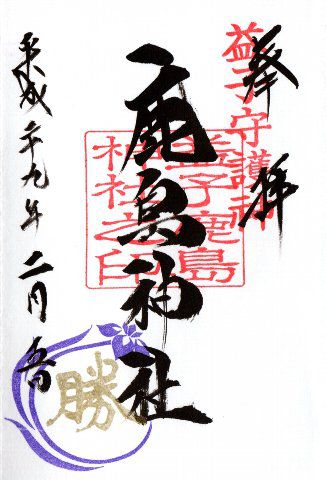 奉拝
益子守護神
鹿島神社
益子鹿島
神社之印
平成二十九年二月吉日
勝